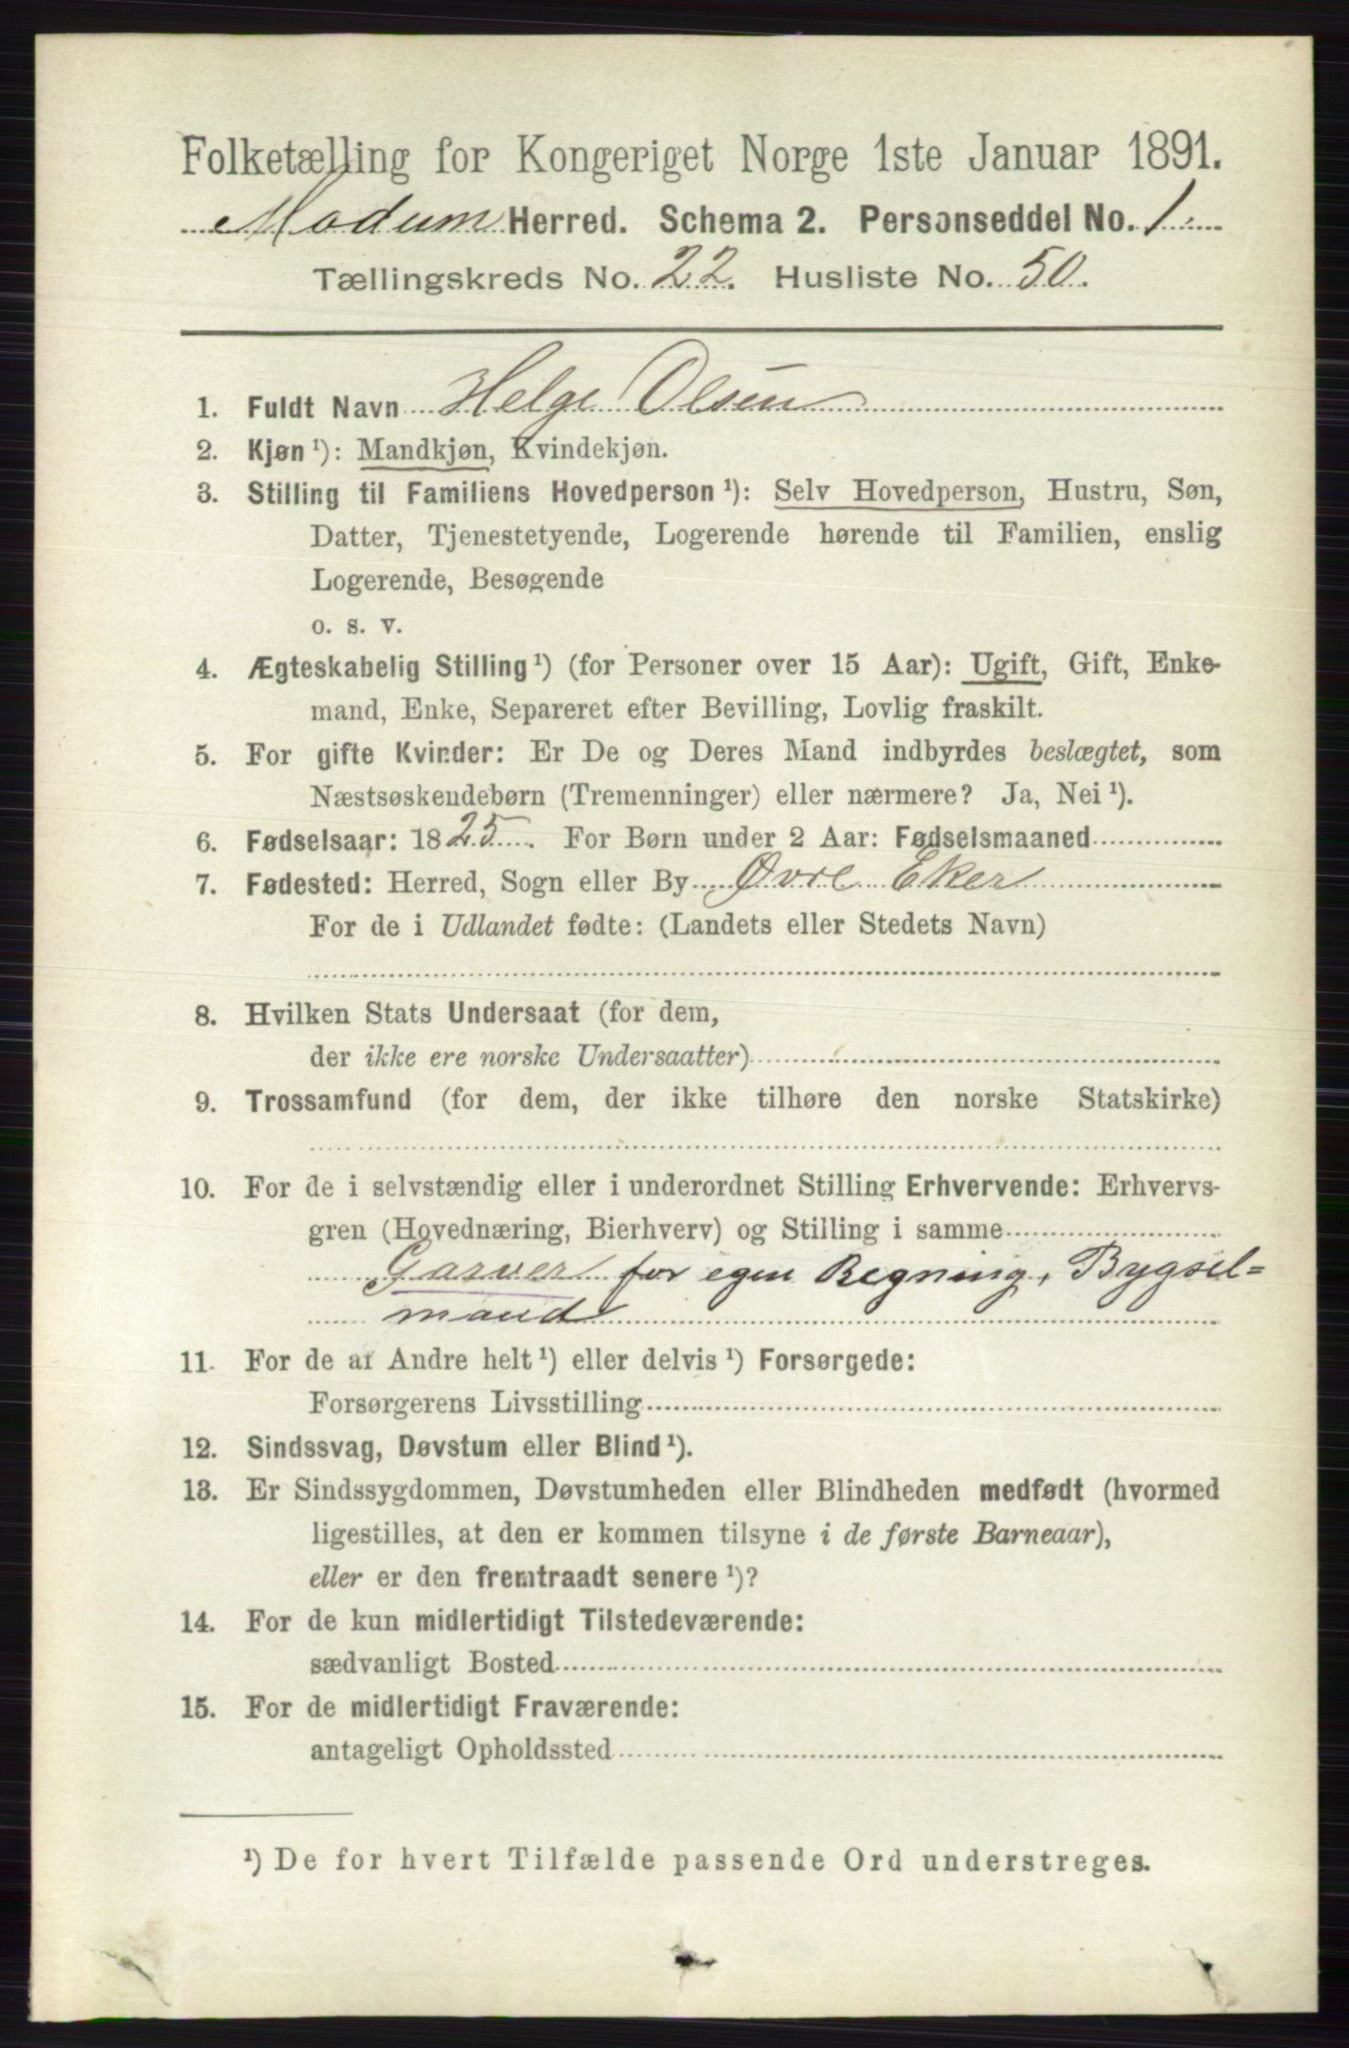 Folketælling for Kongeriget Norge 1ste Januar 1891.
Modum Herred. Schema 2. Personseddel No. 1.
Tællingskreds No. 22. Husliste No. 50.
1. Fuldt Navn Helge Olsen
2. Kjøn ¹): Mandkjøn, Kvindekjøn.
3. Stilling til Familiens Hovedperson ¹): Selv Hovedperson, Hustru, Søn,
Datter, Tjenestetyende, Logerende hørende til Familien, enslig
Logerende, Besøgende
o. s. v.
4. Ægteskabelig Stilling ¹) (for Personer over 15 Aar): Ugift, Gift, Enke-
mand, Enke, Separeret efter Bevilling, Lovlig fraskilt.
5. For gifte Kvinder: Er De og Deres Mand indbyrdes beslægtet, som
Næstsøskendebørn (Tremenninger) eller nærmere? Ja, Nei ¹).
6. Fødselsaar: 1825. For Børn under 2 Aar: Fødselsmaaned
7. Fødested: Herred, Sogn eller By Øvre Eker
For de i Udlandet fødte: (Landets eller Stedets Navn)
8. Hvilken Stats Undersaat (for dem,
der ikke ere norske Undersaatter)
9. Trossamfund (for dem, der ikke tilhøre den norske Statskirke)
10. For de i selvstændig eller i underordnet Stilling Erhvervende: Erhvervs-
gren (Hovednæring, Bierhverv) og Stilling i samme
Garver for egen Regning, Bygsel=
mand
11. For de af Andre helt ¹) eller delvis ¹) Forsørgede:
Forsørgerens Livsstilling
12. Sindssvag, Døvstum eller Blind ¹).
13. Er Sindssygdommen, Døvstumheden eller Blindheden medfødt (hvormed
ligestilles, at den er kommen tilsyne i de første Barneaar),
eller er den fremtraadt senere ¹)?
14. For de kun midlertidigt Tilstedeværende:
sædvanligt Bosted
15. For de midlertidigt Fraværende:
antageligt Opholdssted
¹) De for hvert Tilfælde passende Ord understreges.